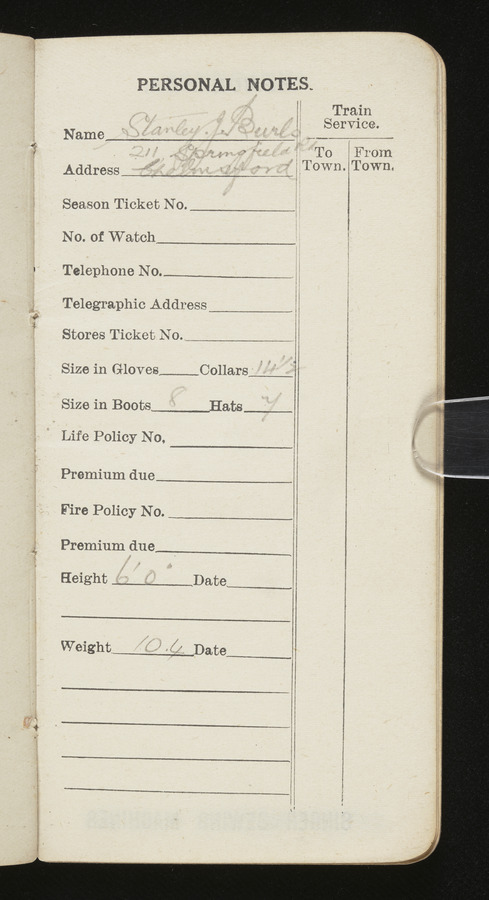 PERSONAL NOTES.
Train
Service.
To
Town.
From
Town.
Name Stanley. J. Burls
211 Springfield Rd
Address Chelmsford
Season Ticket No.
No. of Watch
Telephone No.
Telegraphic Address
Stores Ticket No.
Size in Gloves Collars 14 1/2
Size in Boots 8 Hats 7
Life Policy No.
Premium due
Fire Policy No.
Premium due
Height 6' 0" Date
Weight 10.4 Date